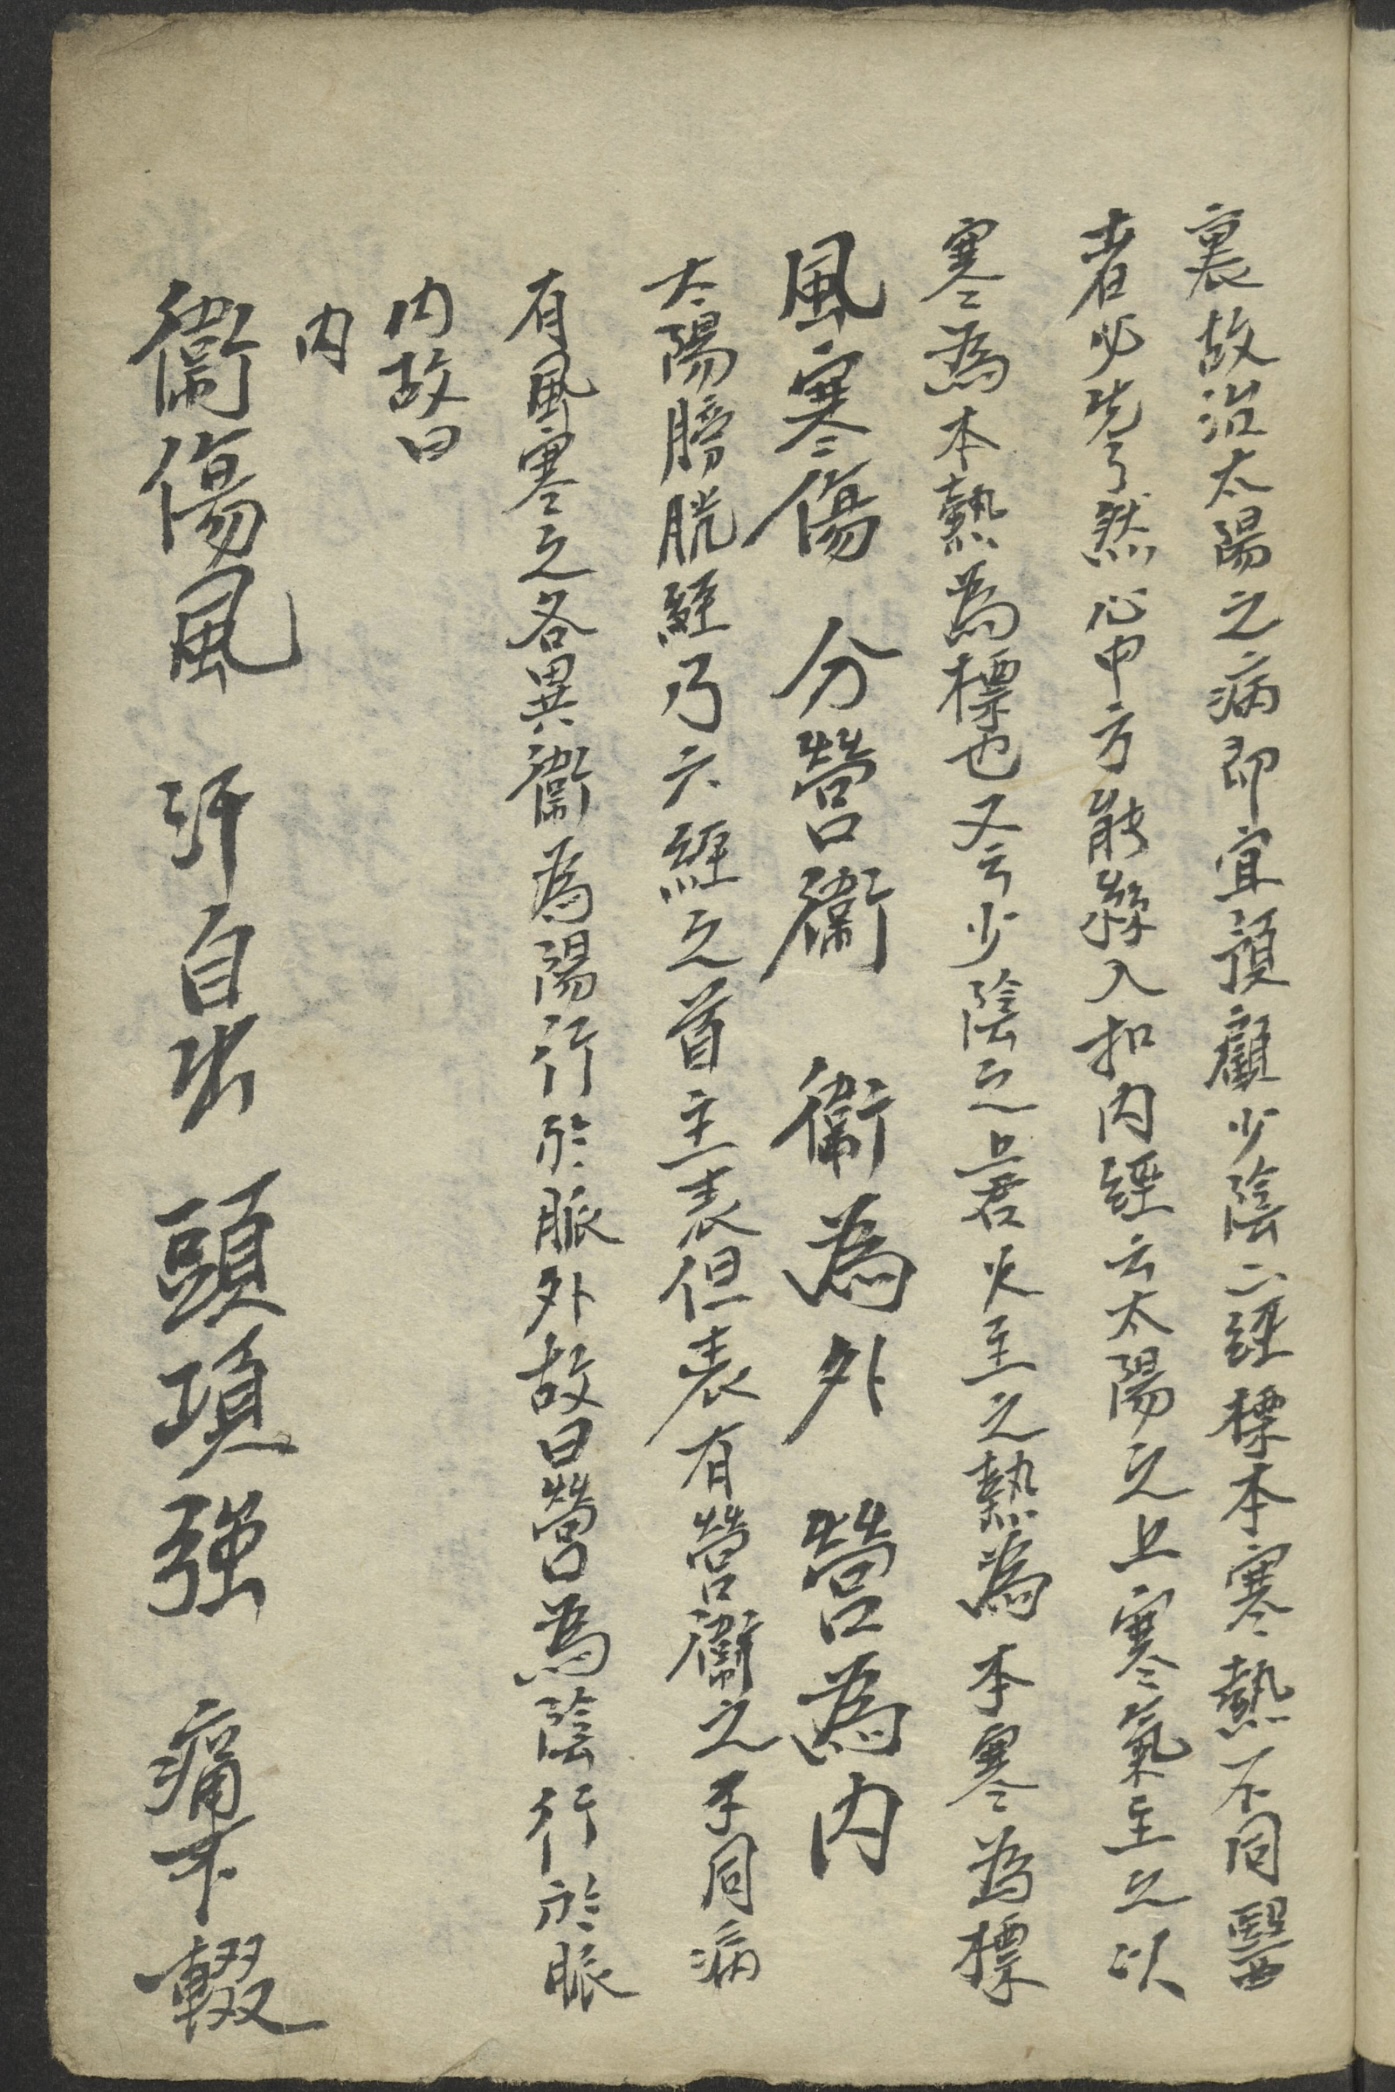 裏故治太陽之病即宜預顧少陰二經標本寒熱不同醫
者必先了然心中方能絲入扣內經云太陽之上寒氣主之以
寒為本熱為標也又云少陰之上君火主之熱為本寒為標
風寒傷 分營衛 衛為外 營為內
太陽膀胱經乃六經之首主表但表有營衛之不同病
有風寒之各異衛為陽行於脈外故曰營為陰行於脈
內故曰
內
衛傷風 汗自出 頭項強 痛不輟